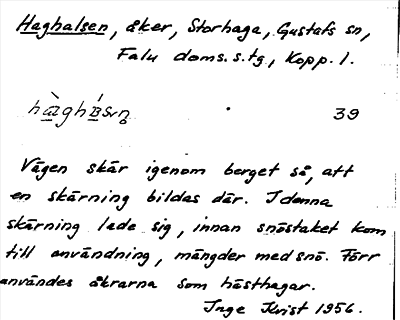 Haghalsen, åker, Storhaga, Gustafs sn,
Falu doms. s. tg, Kopp. l.
39
Vägen skär igenom berget så, att
en skärning bildas där. I denna
skärning lade sig, innan snöstaket kom
till användning, mängder med snö. Förr
användes åkrarna som hästhagar.
Inge Kvist 1956.